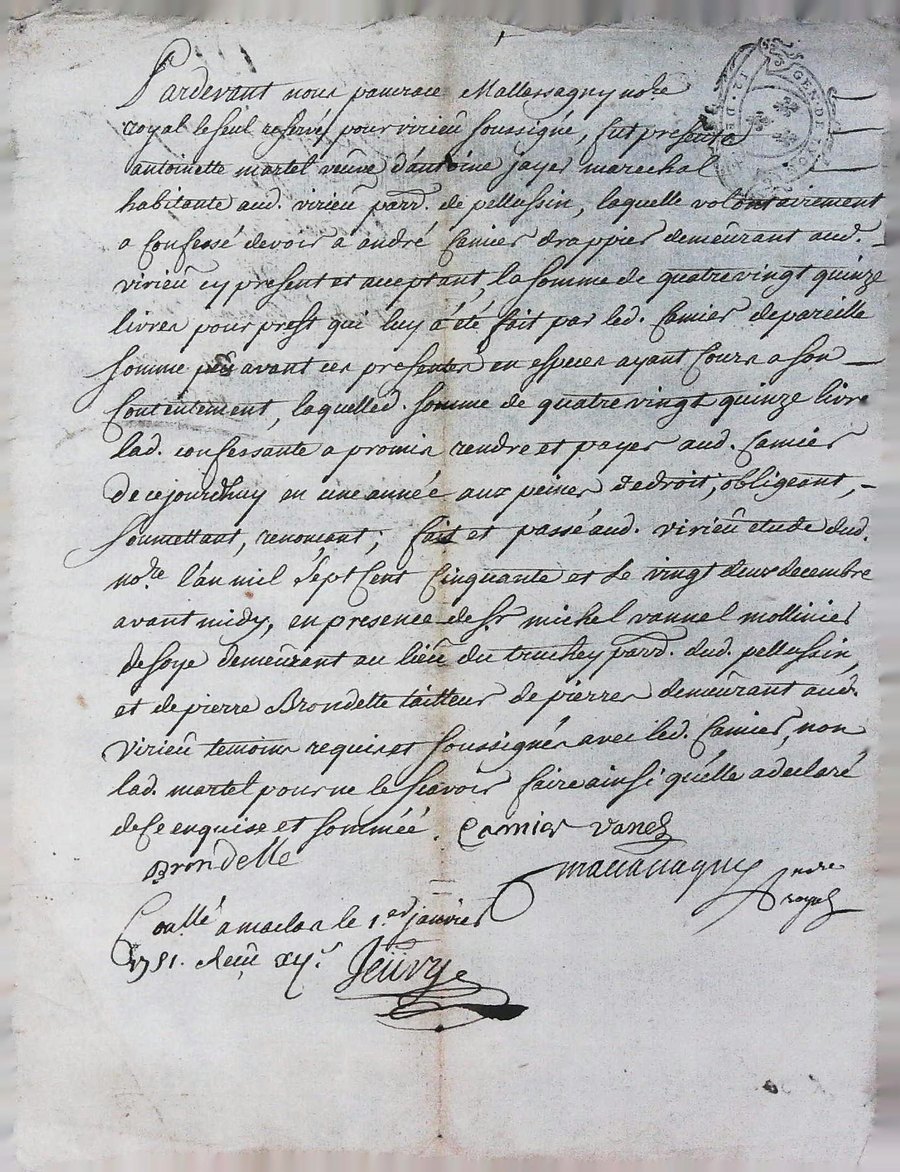 Pardevant nous pancrace Mallassagny no.re
royal le seul reservé pour virieu soussigné, fut presente
antoinette martel veuve d'antoine jayer marechal
habitante aud. virieu parr. de pellussin, laquelle volontairement
a Confessé devoir a andré Camier drappier demeurant aud.
virieu cy present et acceptant, la somme de quatre vingt quinze
livres pour prest qui luy a été fait par led. Camier de pareille
somme avant ces presentes en especes ayant Cours a son
Contentement, laquelle d. somme de quatre vingt quinze livre
lad. confessante a promis rendre et payer aud. Camier
de cejourdhuy en une année aux peines de droit, obligeant,
soumettant, renoncant; fait et passé aud. virieu etude dud.
no.re l'an mil sept Cent Cinquante et le vingt deux decembre
avant midy, en presence de Sr. michel vannel mollinier
de soye demeurant au lieu du truchey parr. dud. pellussin,
et de pierre Brondelle tailleur de pierres demeurant aud.
virieu temoins requis et soussignés avec led. Camier, non
lad. martel pour ne le scavoir faire ainsi qu'elle a declaré
de ce enquise et sommée. Camier vanel
Brondelle
nore
royal
Con.llé a maclas le 1.er janvier
1751. Receu
GEN DE